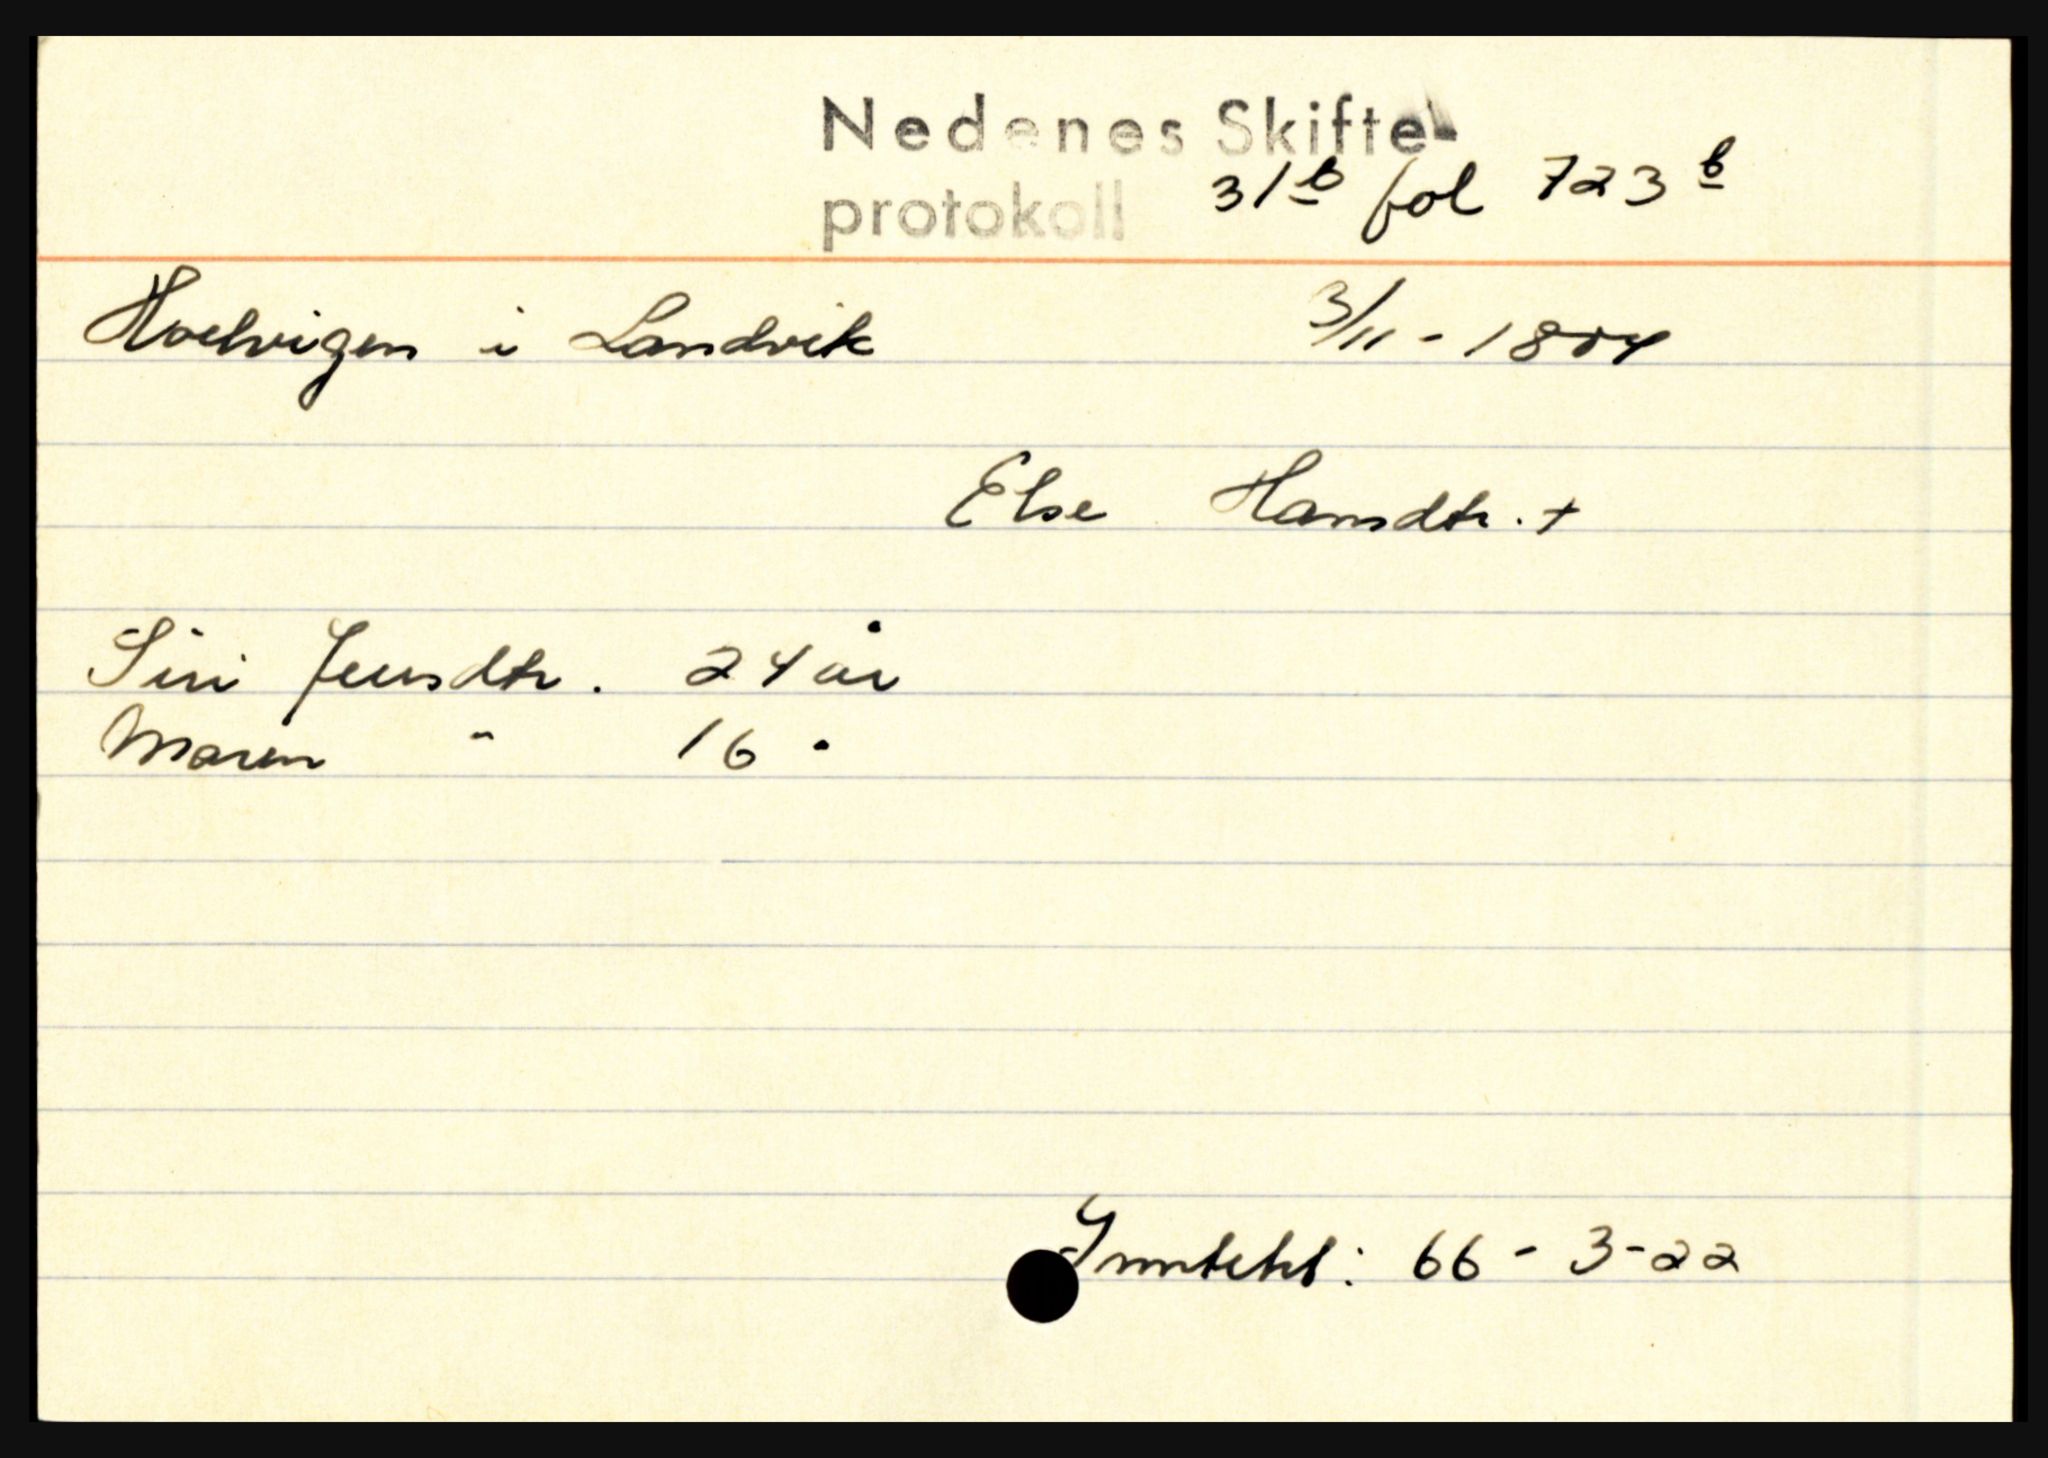 Nedenes Skifte-
protokoll 31b fol 723b
Hoelvigen i Landvik 3/11-1804
Else Hansdtr. +
Siri Jensdtr. 24 år
Maren " 16 "
Inntekt: 66 - 3 - 22